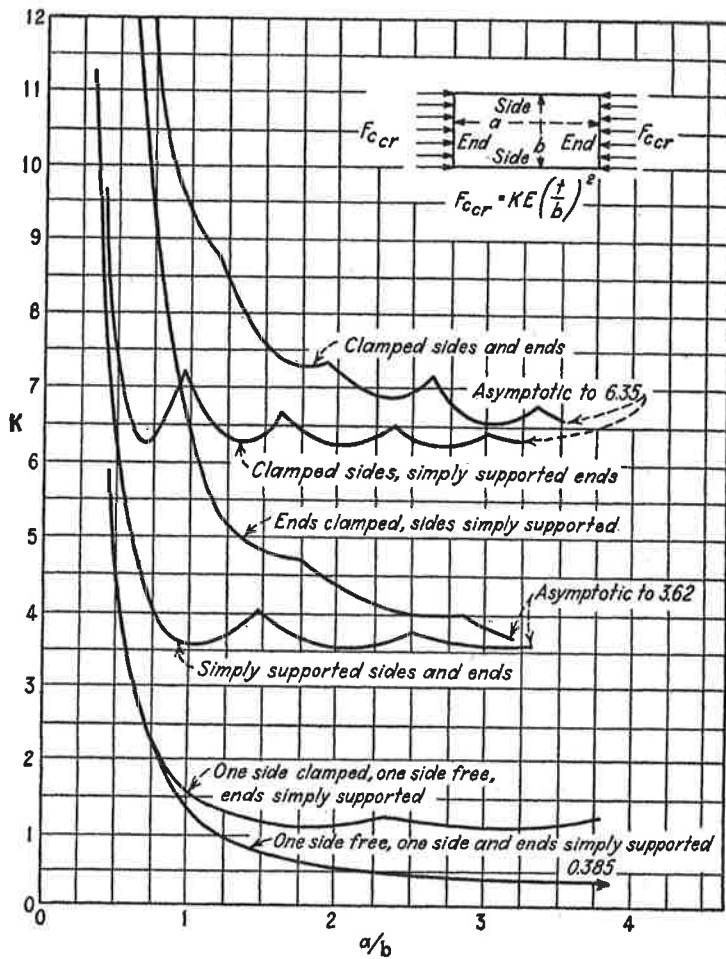 12
11
10
9
8
7
6
5
4
3
2
1
0
K
0
1
2
3
4
a/b
Side
a
End
b
End
Side
F_ccr
F_ccr
F_ccr = KE(t/b)²
Clamped sides and ends
Asymptotic to 6.35
Clamped sides, simply supported ends
Ends clamped, sides simply supported
Asymptotic to 3.62
Simply supported sides and ends
One side clamped, one side free,
ends simply supported
One side free, one side and ends simply supported
0.385